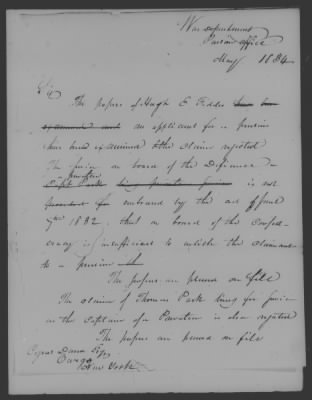 War Department
Pension Office
May 1834
Sir
The papers of Hugh E. Fiddis
examined and an applicant for a pension
have been examined & the claim rejected
The service on board of the Defiance
a privateer
is not
provided for embraced by the act of June
7th 1832, that on board of the Confed-
eracy is insufficient to entitle the claimant
to a pension
The papers are placed on file
The claim of Thomas Park King for service
as the Captain of a Privateer is also rejected
The papers are placed on file
Cyrus Dana Esq
Owego
New York